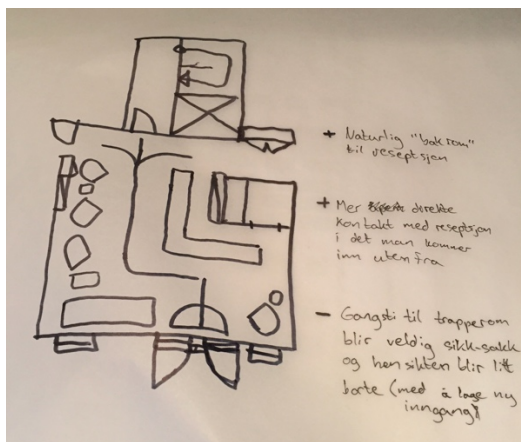 + Naturlig "bakrom"
til resepsjon
+ Mer direkte
kontakt med resepsjon
i det man kommer
inn utenfra
- Gangsti til trapperom
blir veldig sikk-sakk
og hensikten blir litt
borte (med å lage ny
inngang)